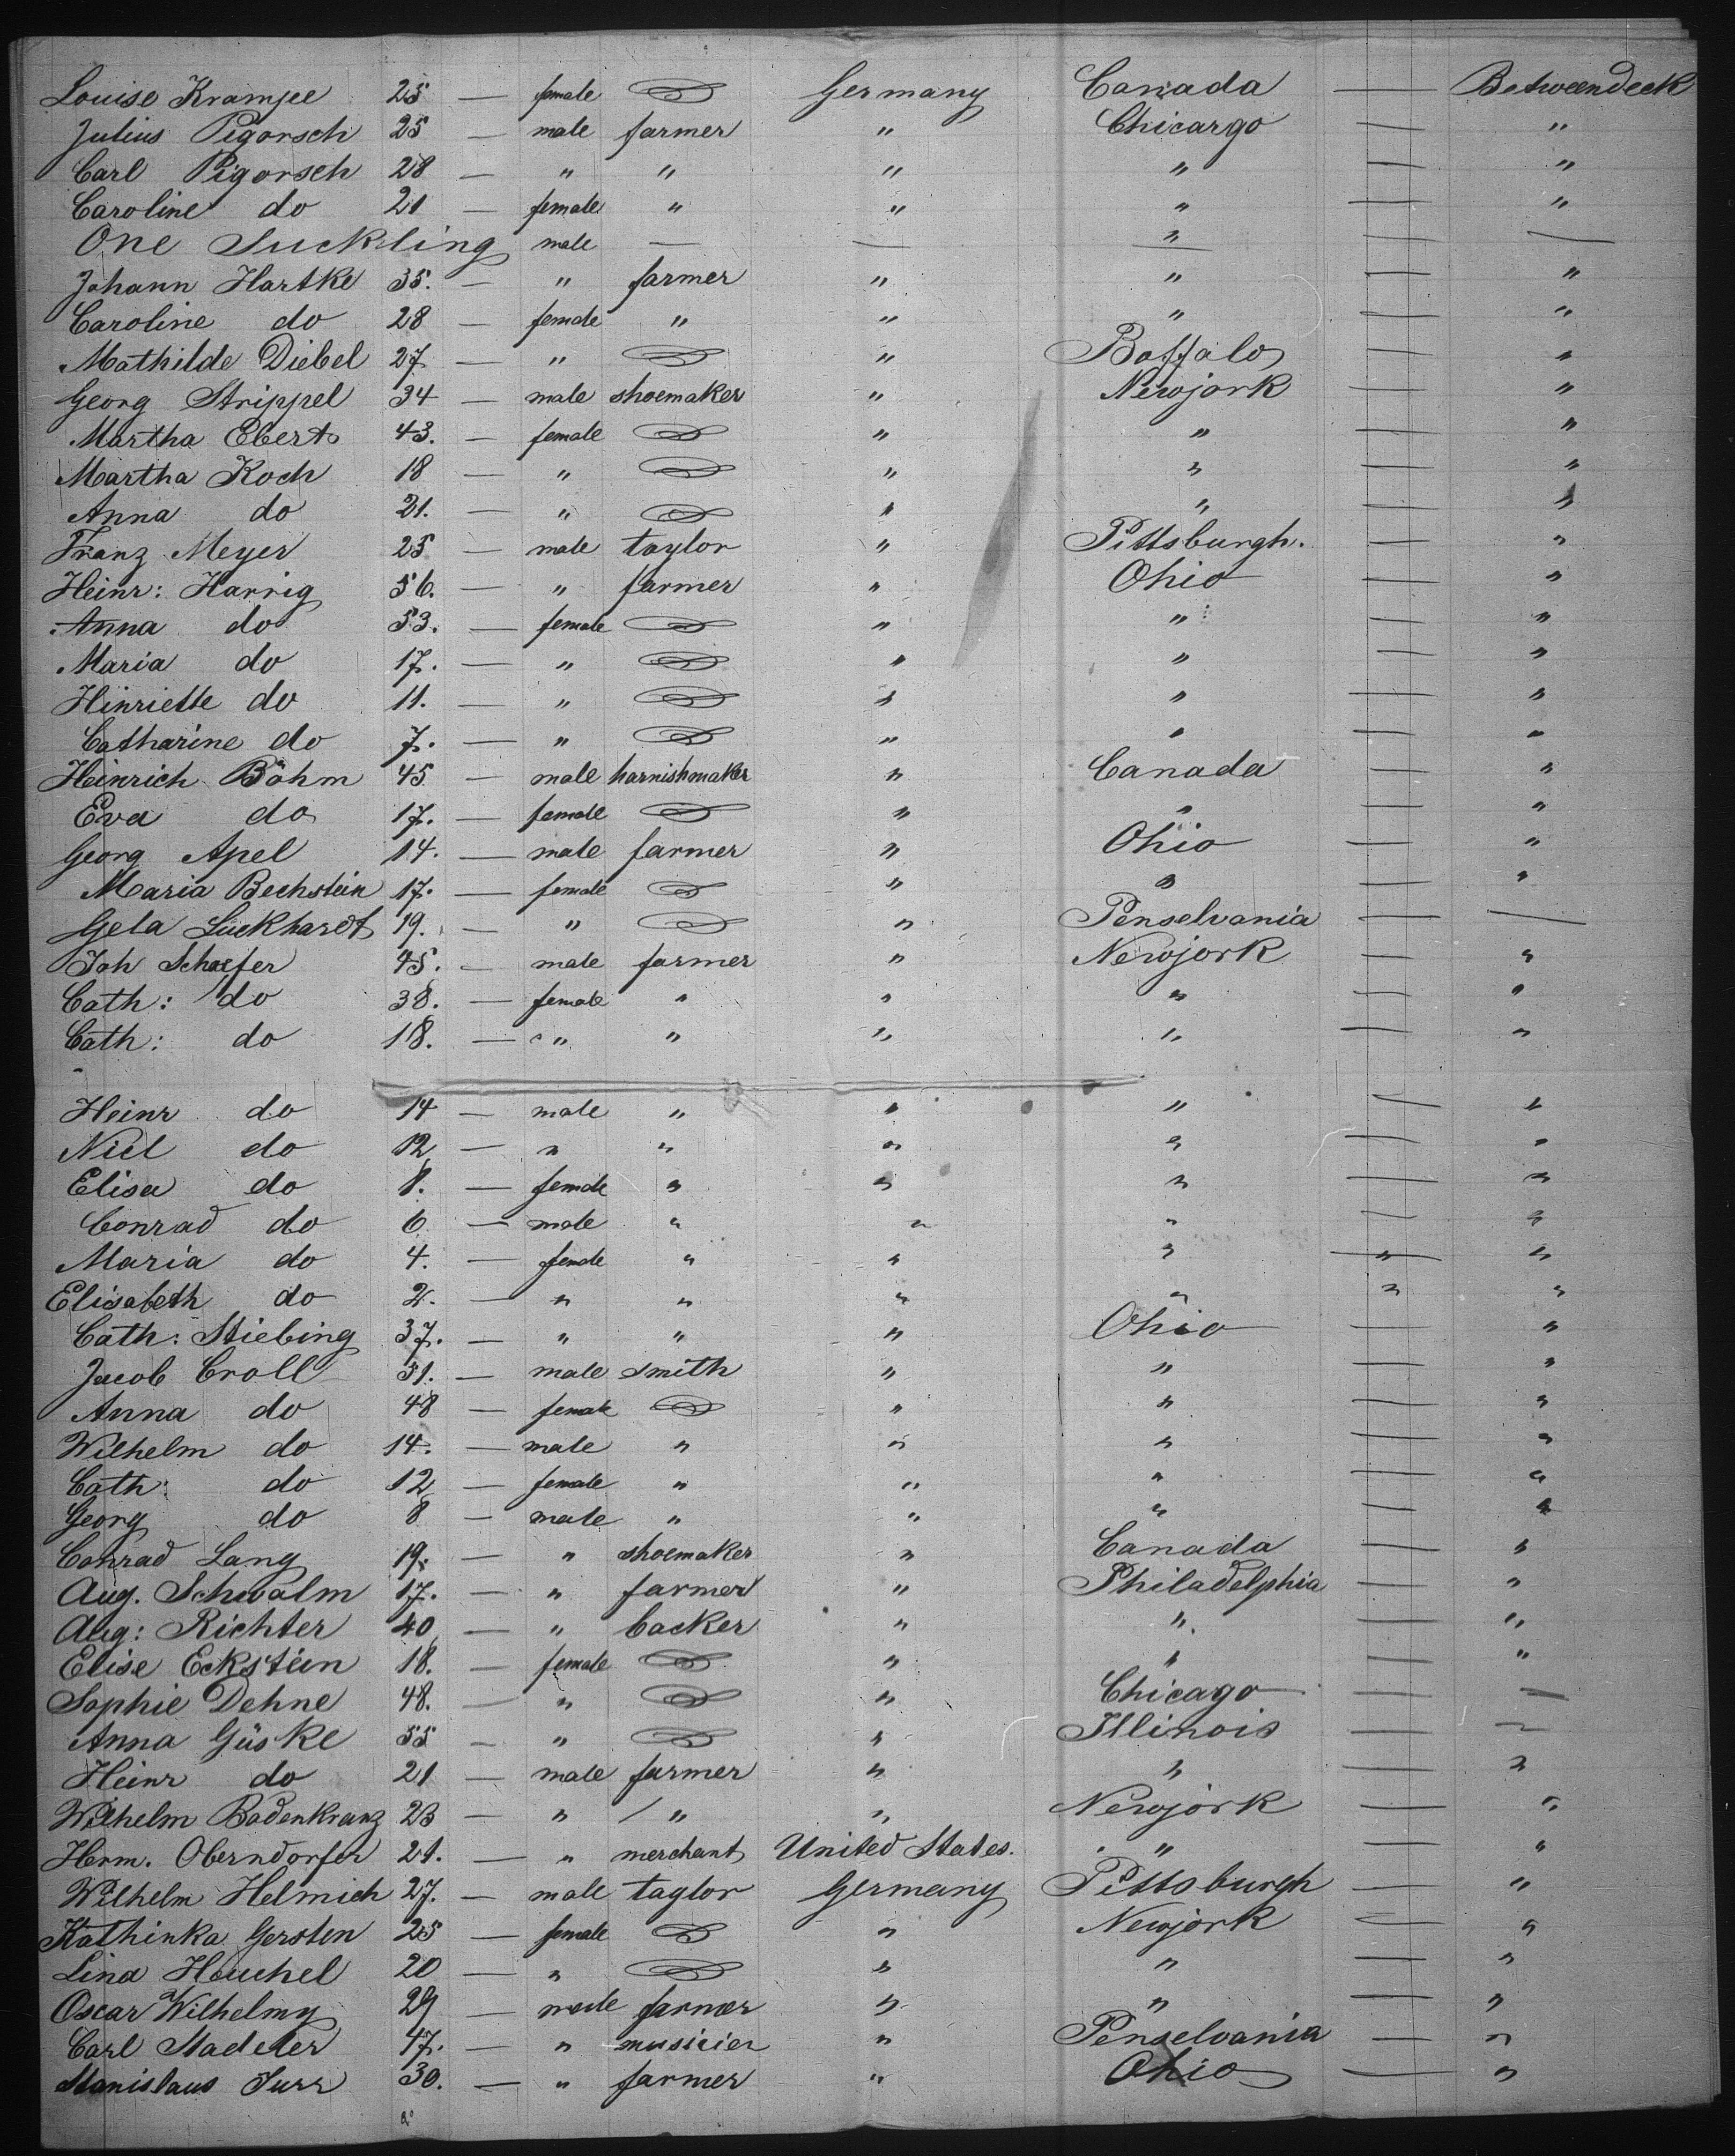 Louise Krampee 25 — female Germany Canada — Betweendeck
Julius Pigorsch 25 — male farmer " Chicargo — "
Carl Pigorsch 28 — " " " " — "
Caroline do 21 — female " " " — "
One Suckling male — — " — —
Johann Hartke 35. — " farmer " " — "
Caroline do 28 — female " " " — "
Mathilde Diebel 27 — " " Boffalo — "
Georg Strippel 34 — male shoemaker " Newjork — "
Martha Ebert 43. — female " " — "
Martha Koch 18 — " " " — "
Anna do 21. — " " " — "
Franz Meyer 25 — male taylor " Pittsburgh. — "
Heinr: Harrig 56. — " farmer " Ohio — "
Anna do 53. — female " " — "
Maria do 17. — " " " — "
Hinriette do 11. — " " " — "
Catharine do 7. — " " " — "
Heinrich Böhm 45 — male harnishmaker " Canada — "
Eva do 17. — female " " — "
Georg Apel 14. — male farmer " Ohio — "
Maria Bechstein 17. — female " " — "
Gela Luckhardt 19. — " " Penselvania — —
Joh Schaefer 45. — male farmer " Newjork — "
Cath: do 38. — female " " " — "
Cath: do 18. — " " " " — "
Heinr do 14 — male " " " — "
Niel do 12 — " " " " — "
Elisa do 8. — female " " " — "
Conrad do 6 — male " " " — "
Maria do 4. — female " " " — " "
Elisabeth do 2. — " " " " " "
Cath: Stiebing 37. — " " " Ohio — "
Jacob Croll 51. — male smith " " — "
Anna do 48 — female " " — "
Wilhelm do 14. — male " " " — "
Cath: do 12 — female " " " — "
Georg do 8 — male " " " — "
Conrad Lang 19. — " shoemaker " Canada — "
Aug. Schwalm 17. — " farmer " Philadelphia — "
Aug: Richter 40 — " backer " " — "
Elise Eckstein 18. — female " " — "
Sophie Dehne 48. — " " Chicago — —
Anna Güske 55 — " " Illinois — "
Heinr do 21 — male farmer " " — "
Wilhelm Bodenkranz 23 — " " " Newjork — "
Herm. Oberndorfer 21. — " merchant United States. " — "
Wilhelm Helmich 27. — male taylor Germany Pittsburgh — "
Kathinka Gersten 25 — female " Newjork — "
Lina Heuchel 20 — " " " — "
Oscar Wilhelmy 29 — male farmer " " — "
Carl Stadeler 47. — " musicien " Penselvania — "
Stanislaus Jurr 30. — " farmer " Ohio — "